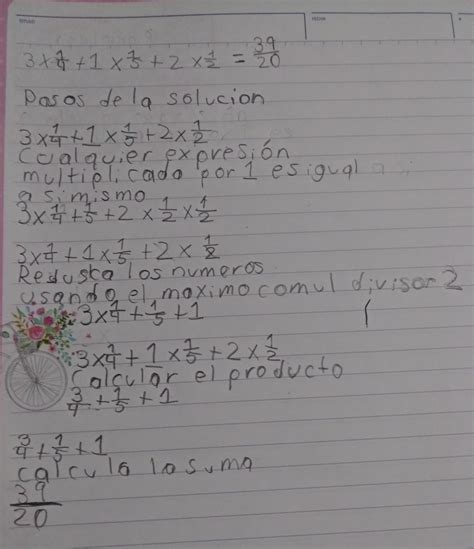 3×1/4+1×1/5+2×1/2=39/20
Pasos de la solucion
3×1/4+1×1/5+2×1/2
Cualquier expresión
multiplicado por 1 es igual
a si mismo
3×1/4+1/5+2×1/2×1/2
3×1/4+1×1/5+2×1/2
Redusca los numeros
usando el maximo comul divisor 2
3×1/4+1/5+1
3×1/4+1×1/5+2×1/2
Calcular el producto
3/4+1/5+1
3/4+1/5+1
calcula la suma
39/20